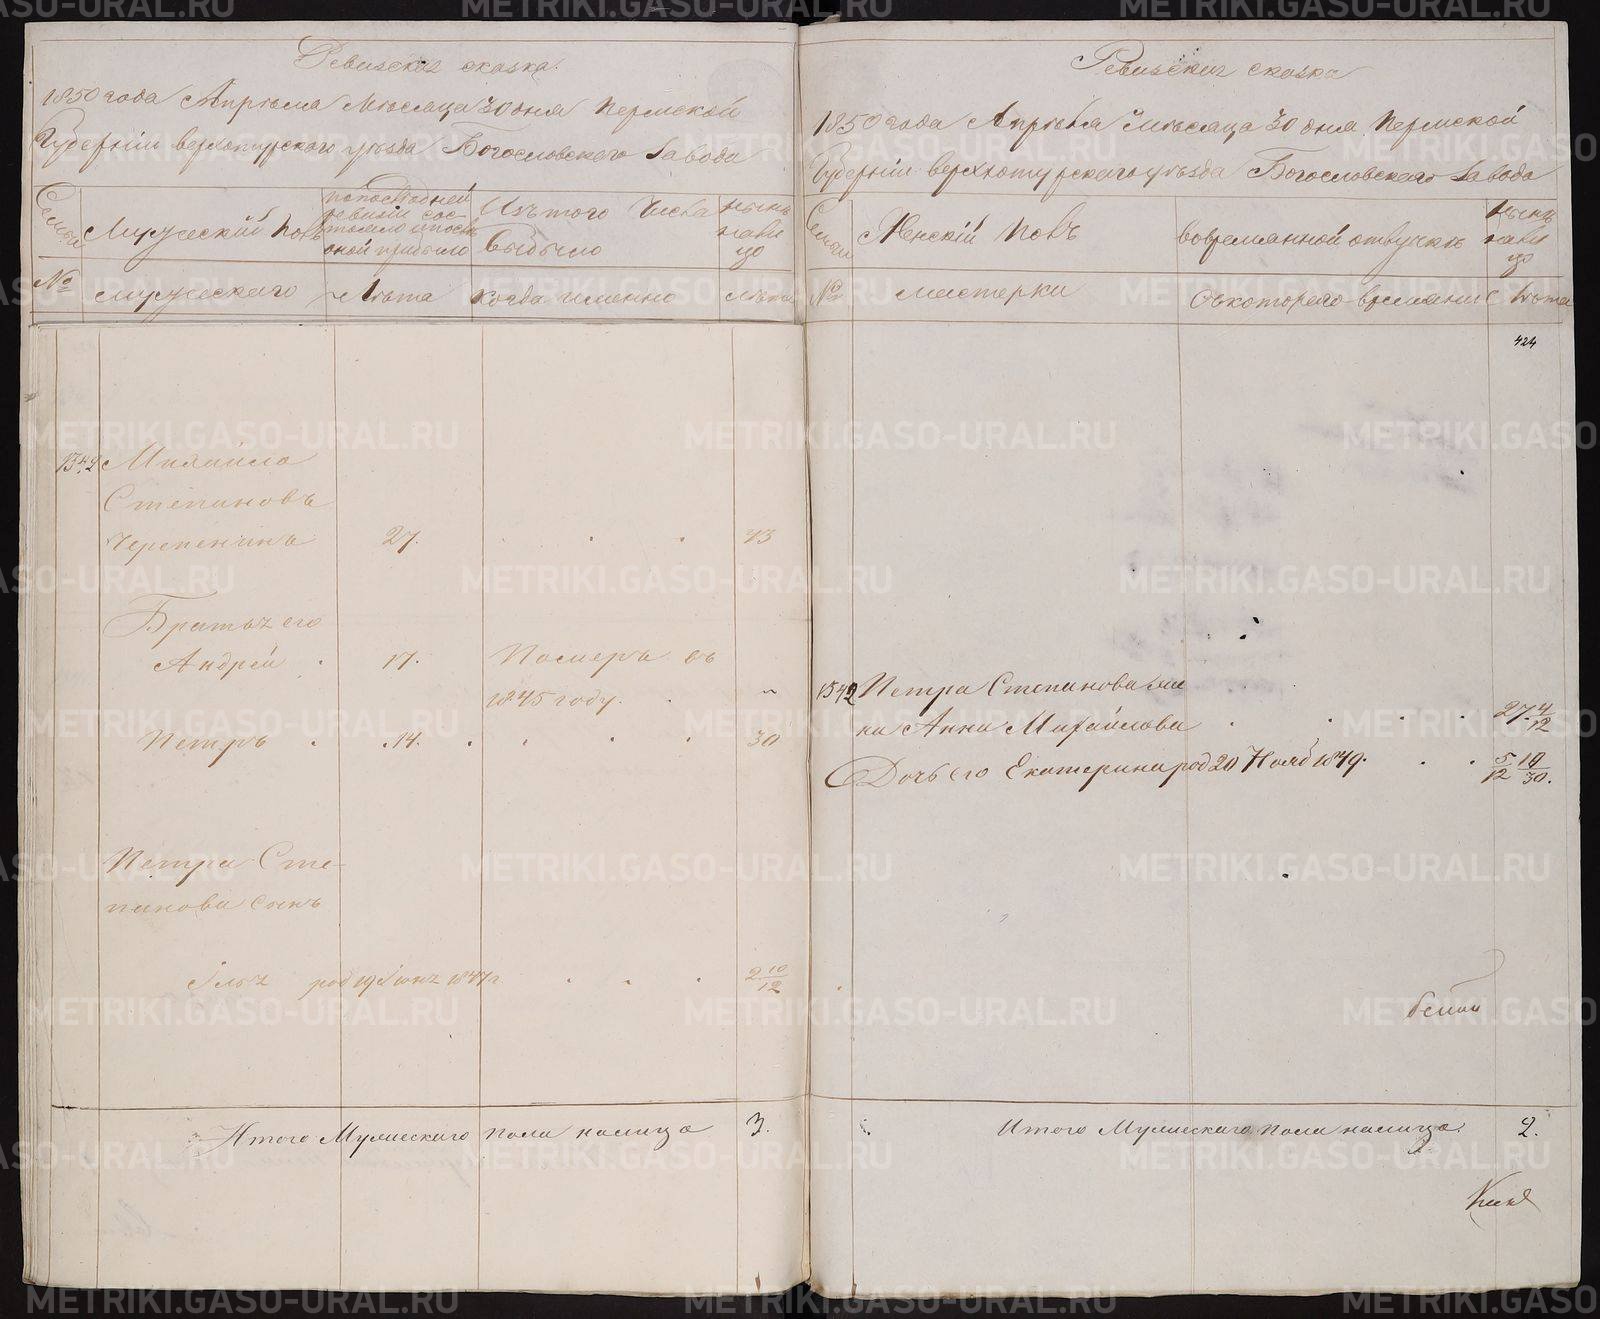 Ревизская сказка.
1850 года Апрѣля Мѣсяца 30 дня Пермской
Губерніи верхотурского уѣзда Богословского Завода
Семьи
Мужеский Полъ
по последней
ревизіи сос-
тояло и посль
оной прибыло
Изъ того Числа
Выбыло
нынѣ
нали
цо
№
мужескаго
Лѣта
когда именно
лѣта
1542 Михайло
Степановъ
Черепенинъ 27. 43
Братья его
Андрей 17. Померъ въ
1845 году.
Петръ 14. 30
Петра Сте-
панова сынъ
Илья род 19 Іюня 1847 г 2 10/12
Итого Мужескаго пола налицо 3.
Ревизская сказка
1850 года Апрѣля Мѣсяца 30 дня Пермской
Губерніи верхотурского уѣзда Богословского Завода
Семьи
Женскій Полъ
во временной отлучкѣ
нынѣ
нали
цо
№
съ которого времени
Лѣта
424
1542 Петра Степанова же
на Анна Михайлова 27 4/12
Дочь его Екатерина род 20 Нояб 1849. 5/12 10/30.
Итого Мужескаго пола налицо. 2.
METRIKI.GASO-URAL.RU